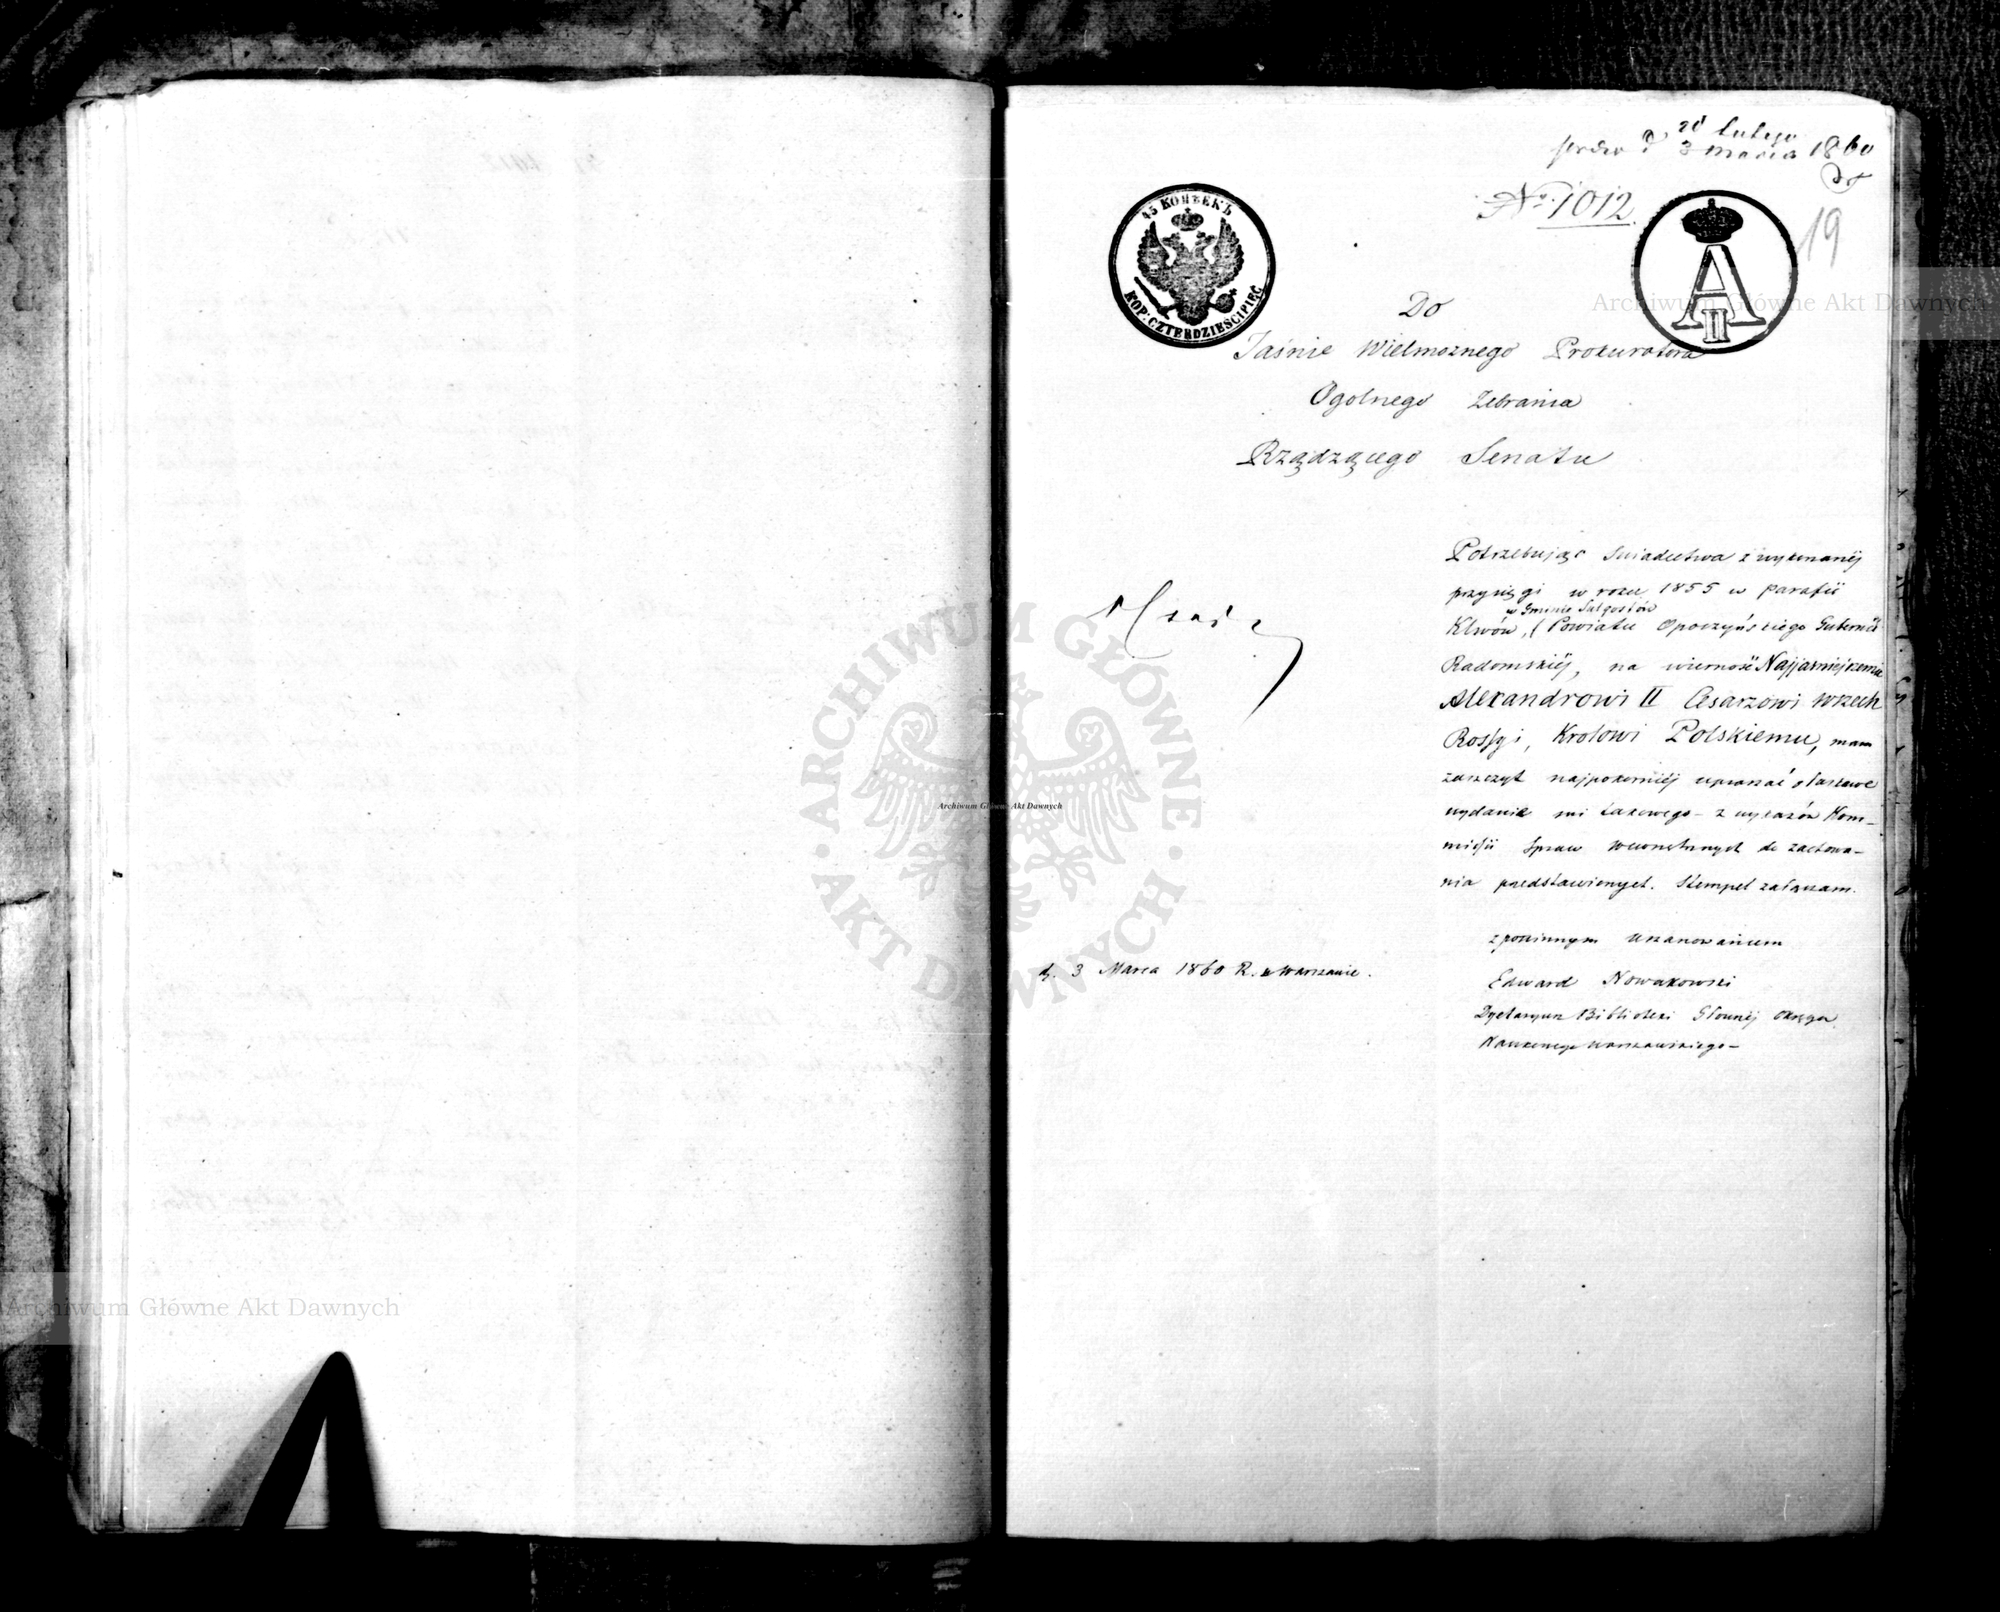 20 lutego
3 marca 1860
№ 1012
19
45 КОПѢЕКЪ
KOP: CZTERDZIEŚCI PIĘĆ
A II
Do
Jaśnie Wielmożnego Prokuratora
Ogolnego Zebrania
Rządzącego Senatu
Potrzebując Swiadectwa z wykonanéj
przysięgi w roku 1855 w parafii
w Gminie Sulgostów
Klwów, Powiatu Opoczyńskiego Gubernii
Radomskiéj, na wierność Najjasniejszemu
Alexandrowi II Cesarzowi wszech
Rossyi, Krolowi Polskiemu, mam
zaszczyt najpokorniéj upraszać o łaskawe
wydanie mi takowego – z wykazów Kom-
missii Spraw Wewnętrznych do zachowa-
nia przedstawionych. Stempel załączam.
z powinnym uszanowaniem
d. 3 Marca 1860 R. w Warszawie.
Edward Nowakowski
Dyetaryusz Biblioteki Głównéj Okręgu
Naukowego Warszawskiego –
Archiwum Główne Akt Dawnych
ARCHIWUM GŁÓWNE AKT DAWNYCH
Archiwum Główne Akt Dawnych
Archiwum Główne Akt Dawnych